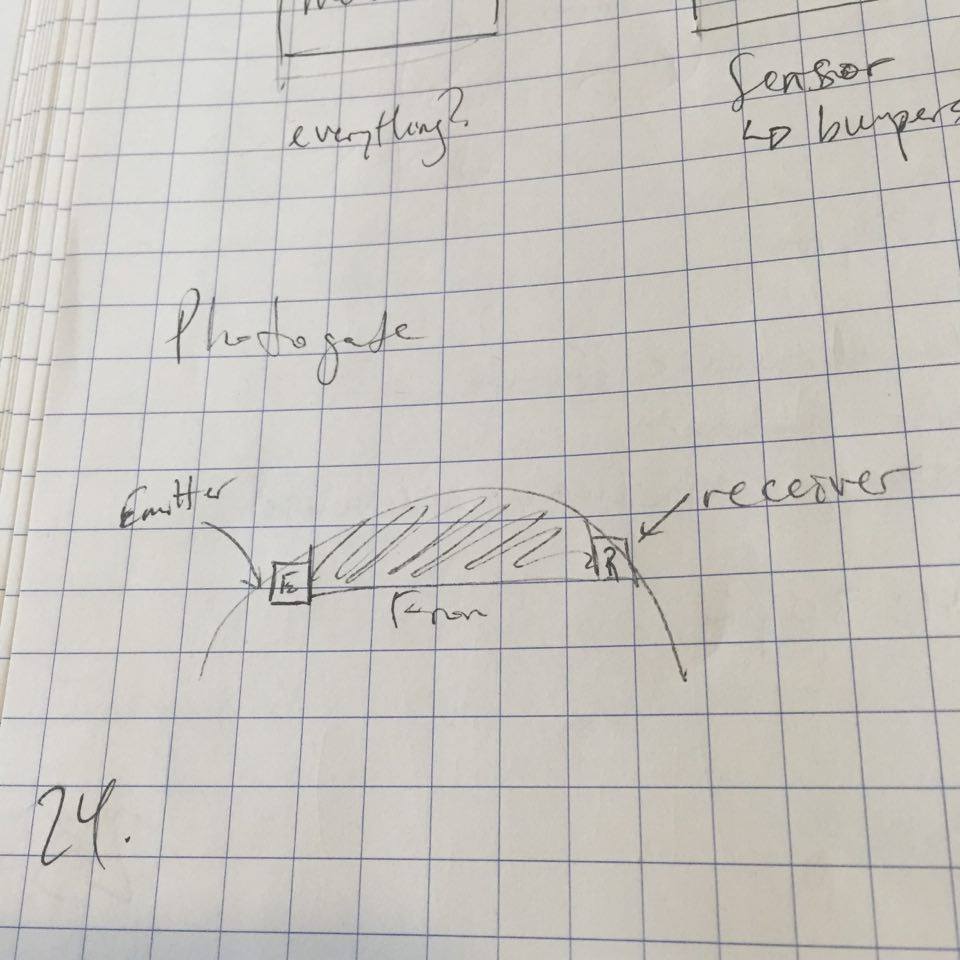 everything?
Sensor
↳ bumpers
Photogate
Emitter
receiver
E
R
24.